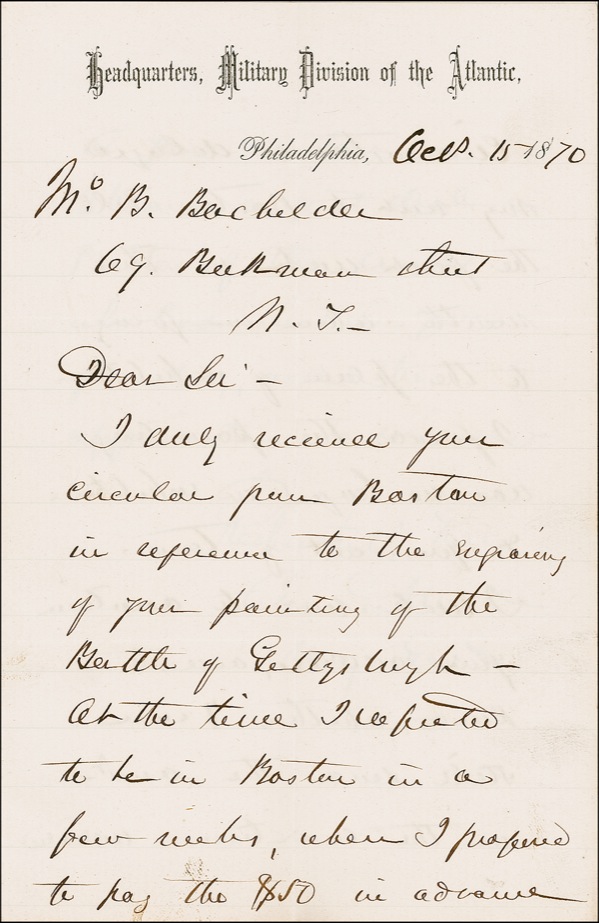 Headquarters, Military Division of the Atlantic,
Philadelphia, Oct. 15 1870
Mr. B. Bachelder
69. Beekman street
N. Y. —
Dear Sir —
I duly received your
circular from Boston
in reference to the engraving
of your painting of the
Battle of Gettysburgh —
At the time I expected
to be in Boston in a
few weeks, when I proposed
to pay the $50 in advance